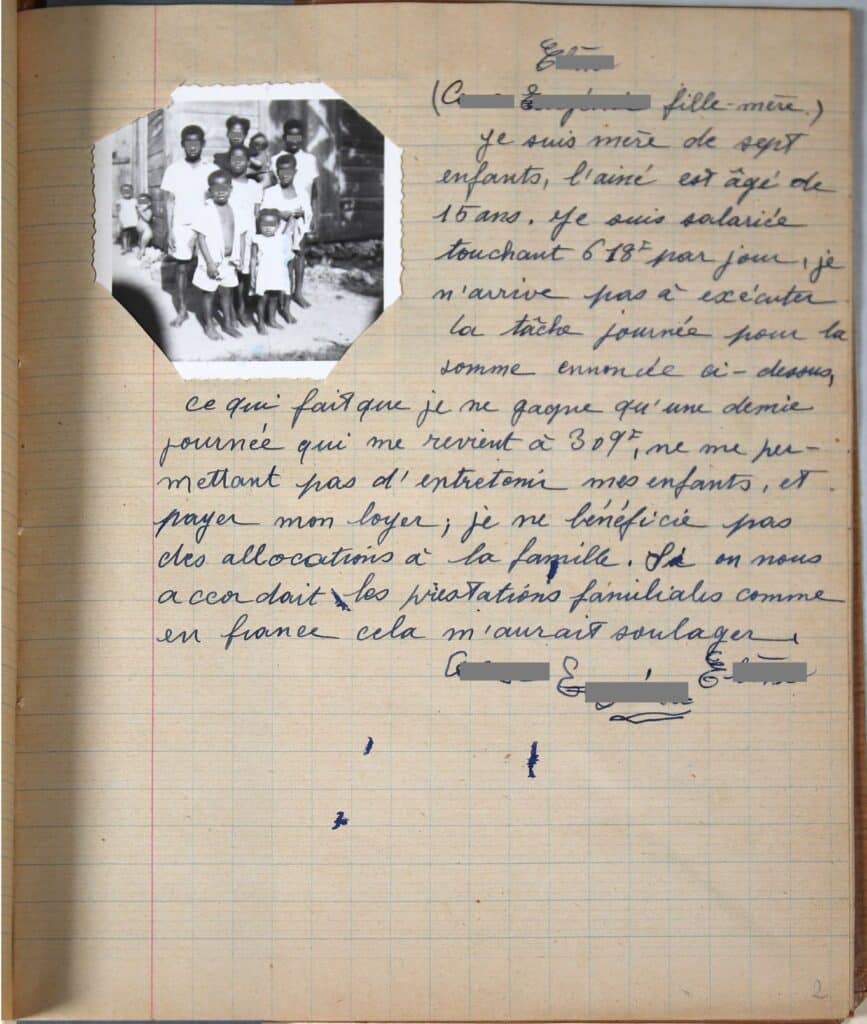 fille-mère.)
Je suis mère de sept
enfants, l'ainé est âgé de
15 ans. Je suis salariée
touchant 618F par jour, je
n'arrive pas à exécuter
la tâche journée pour la
somme ennoncée ci-dessus,
ce qui fait que je ne gagne qu'une demie
journée qui me revient à 309F, ne me per-
mettant pas d'entretenir mes enfants, et
payer mon loyer, je ne bénéficie pas
des allocations à la famille. Si on nous
accordait les prestations familiales comme
en france cela m'aurait soulager.
2